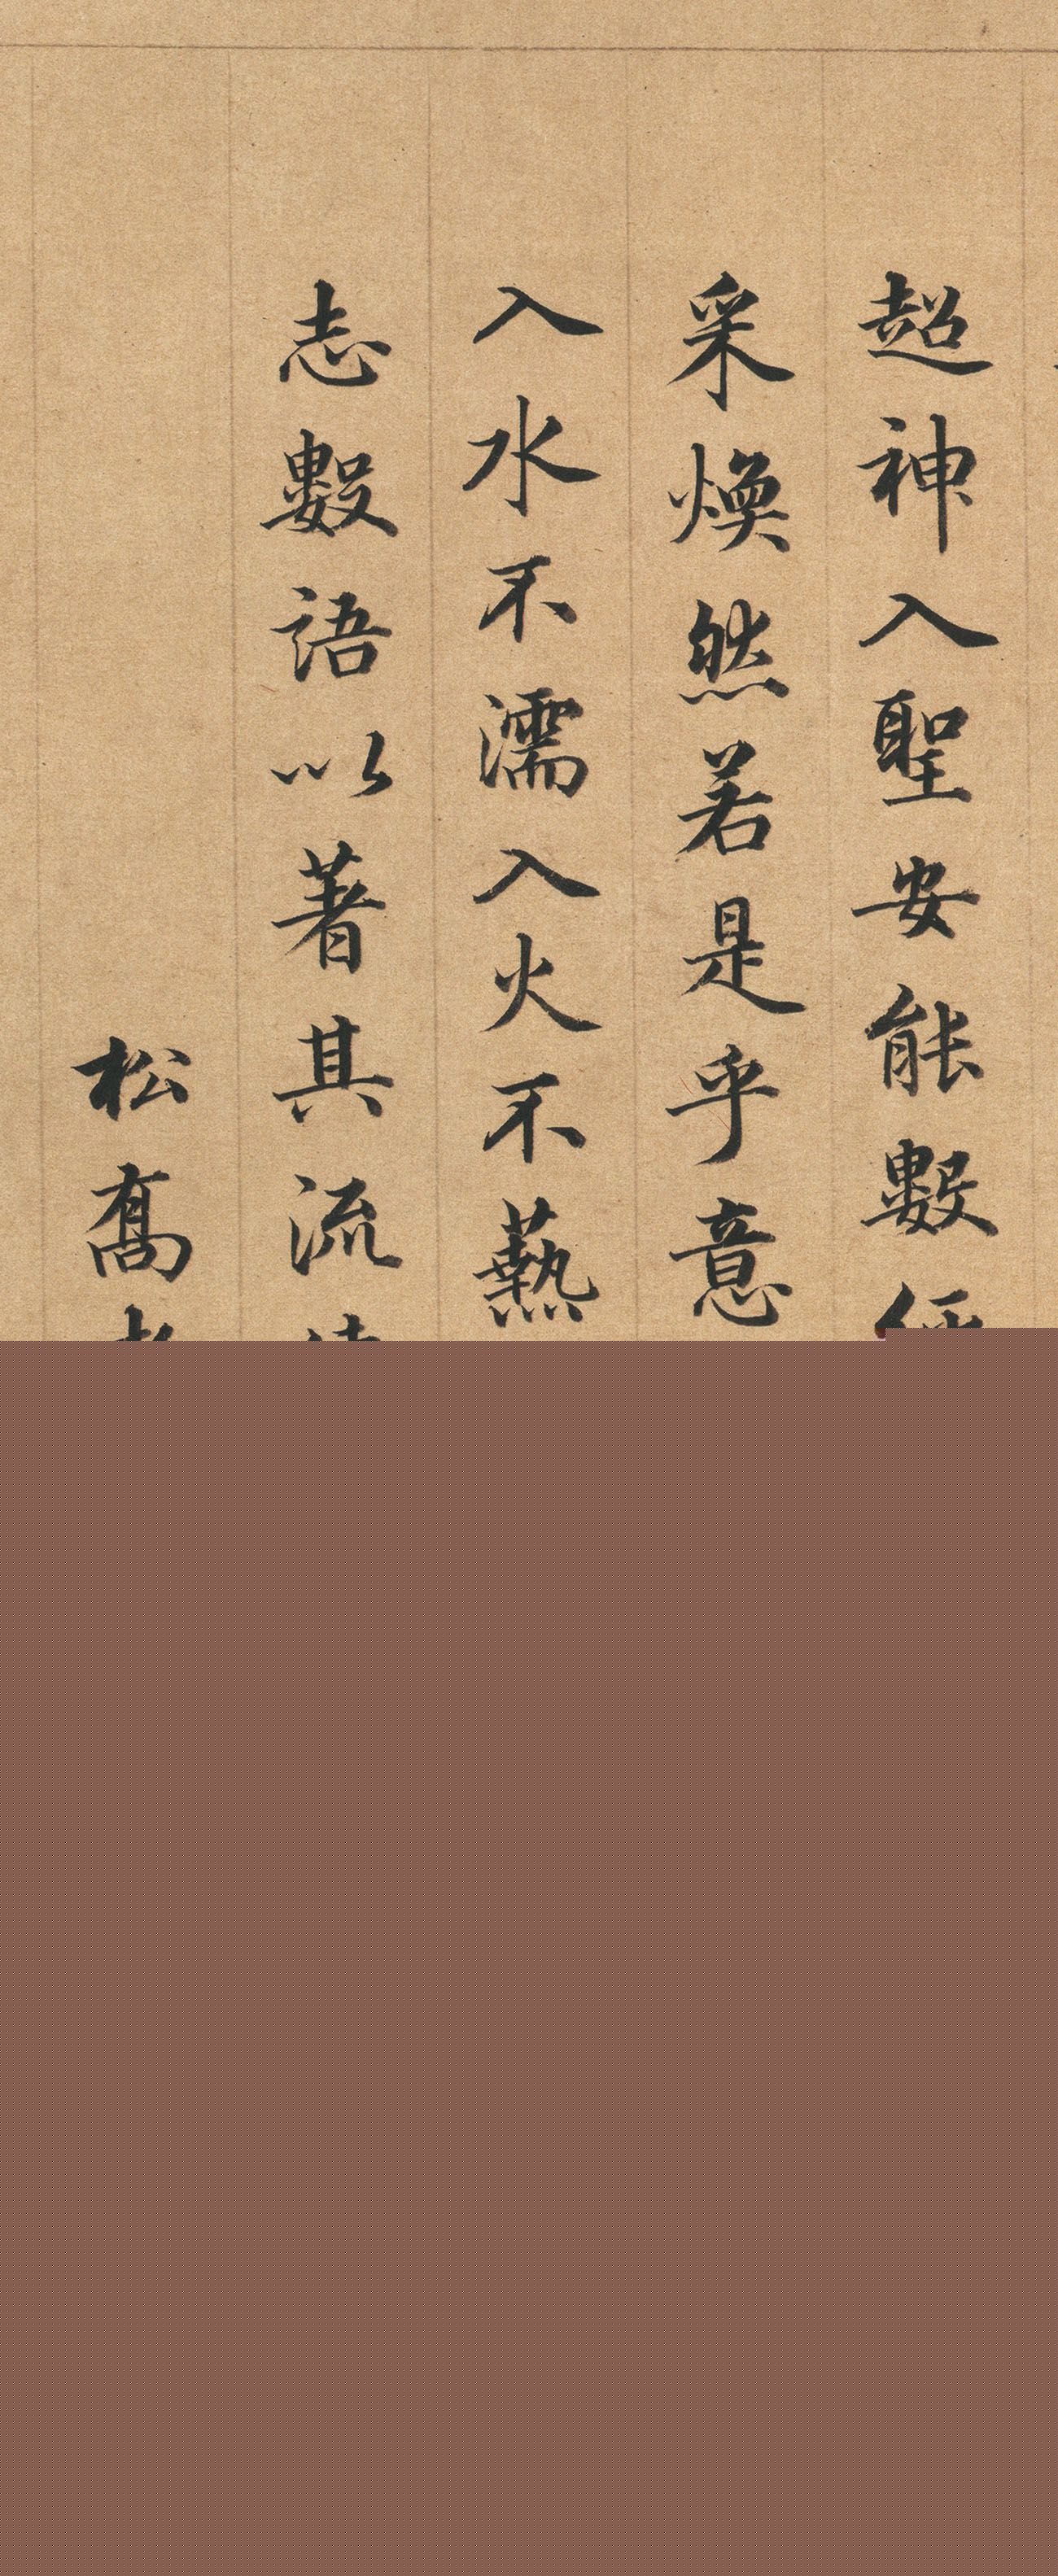 超神入聖安能數
采煥然若是乎意
入水不濡入火不爇
志數語以著其流
松喬